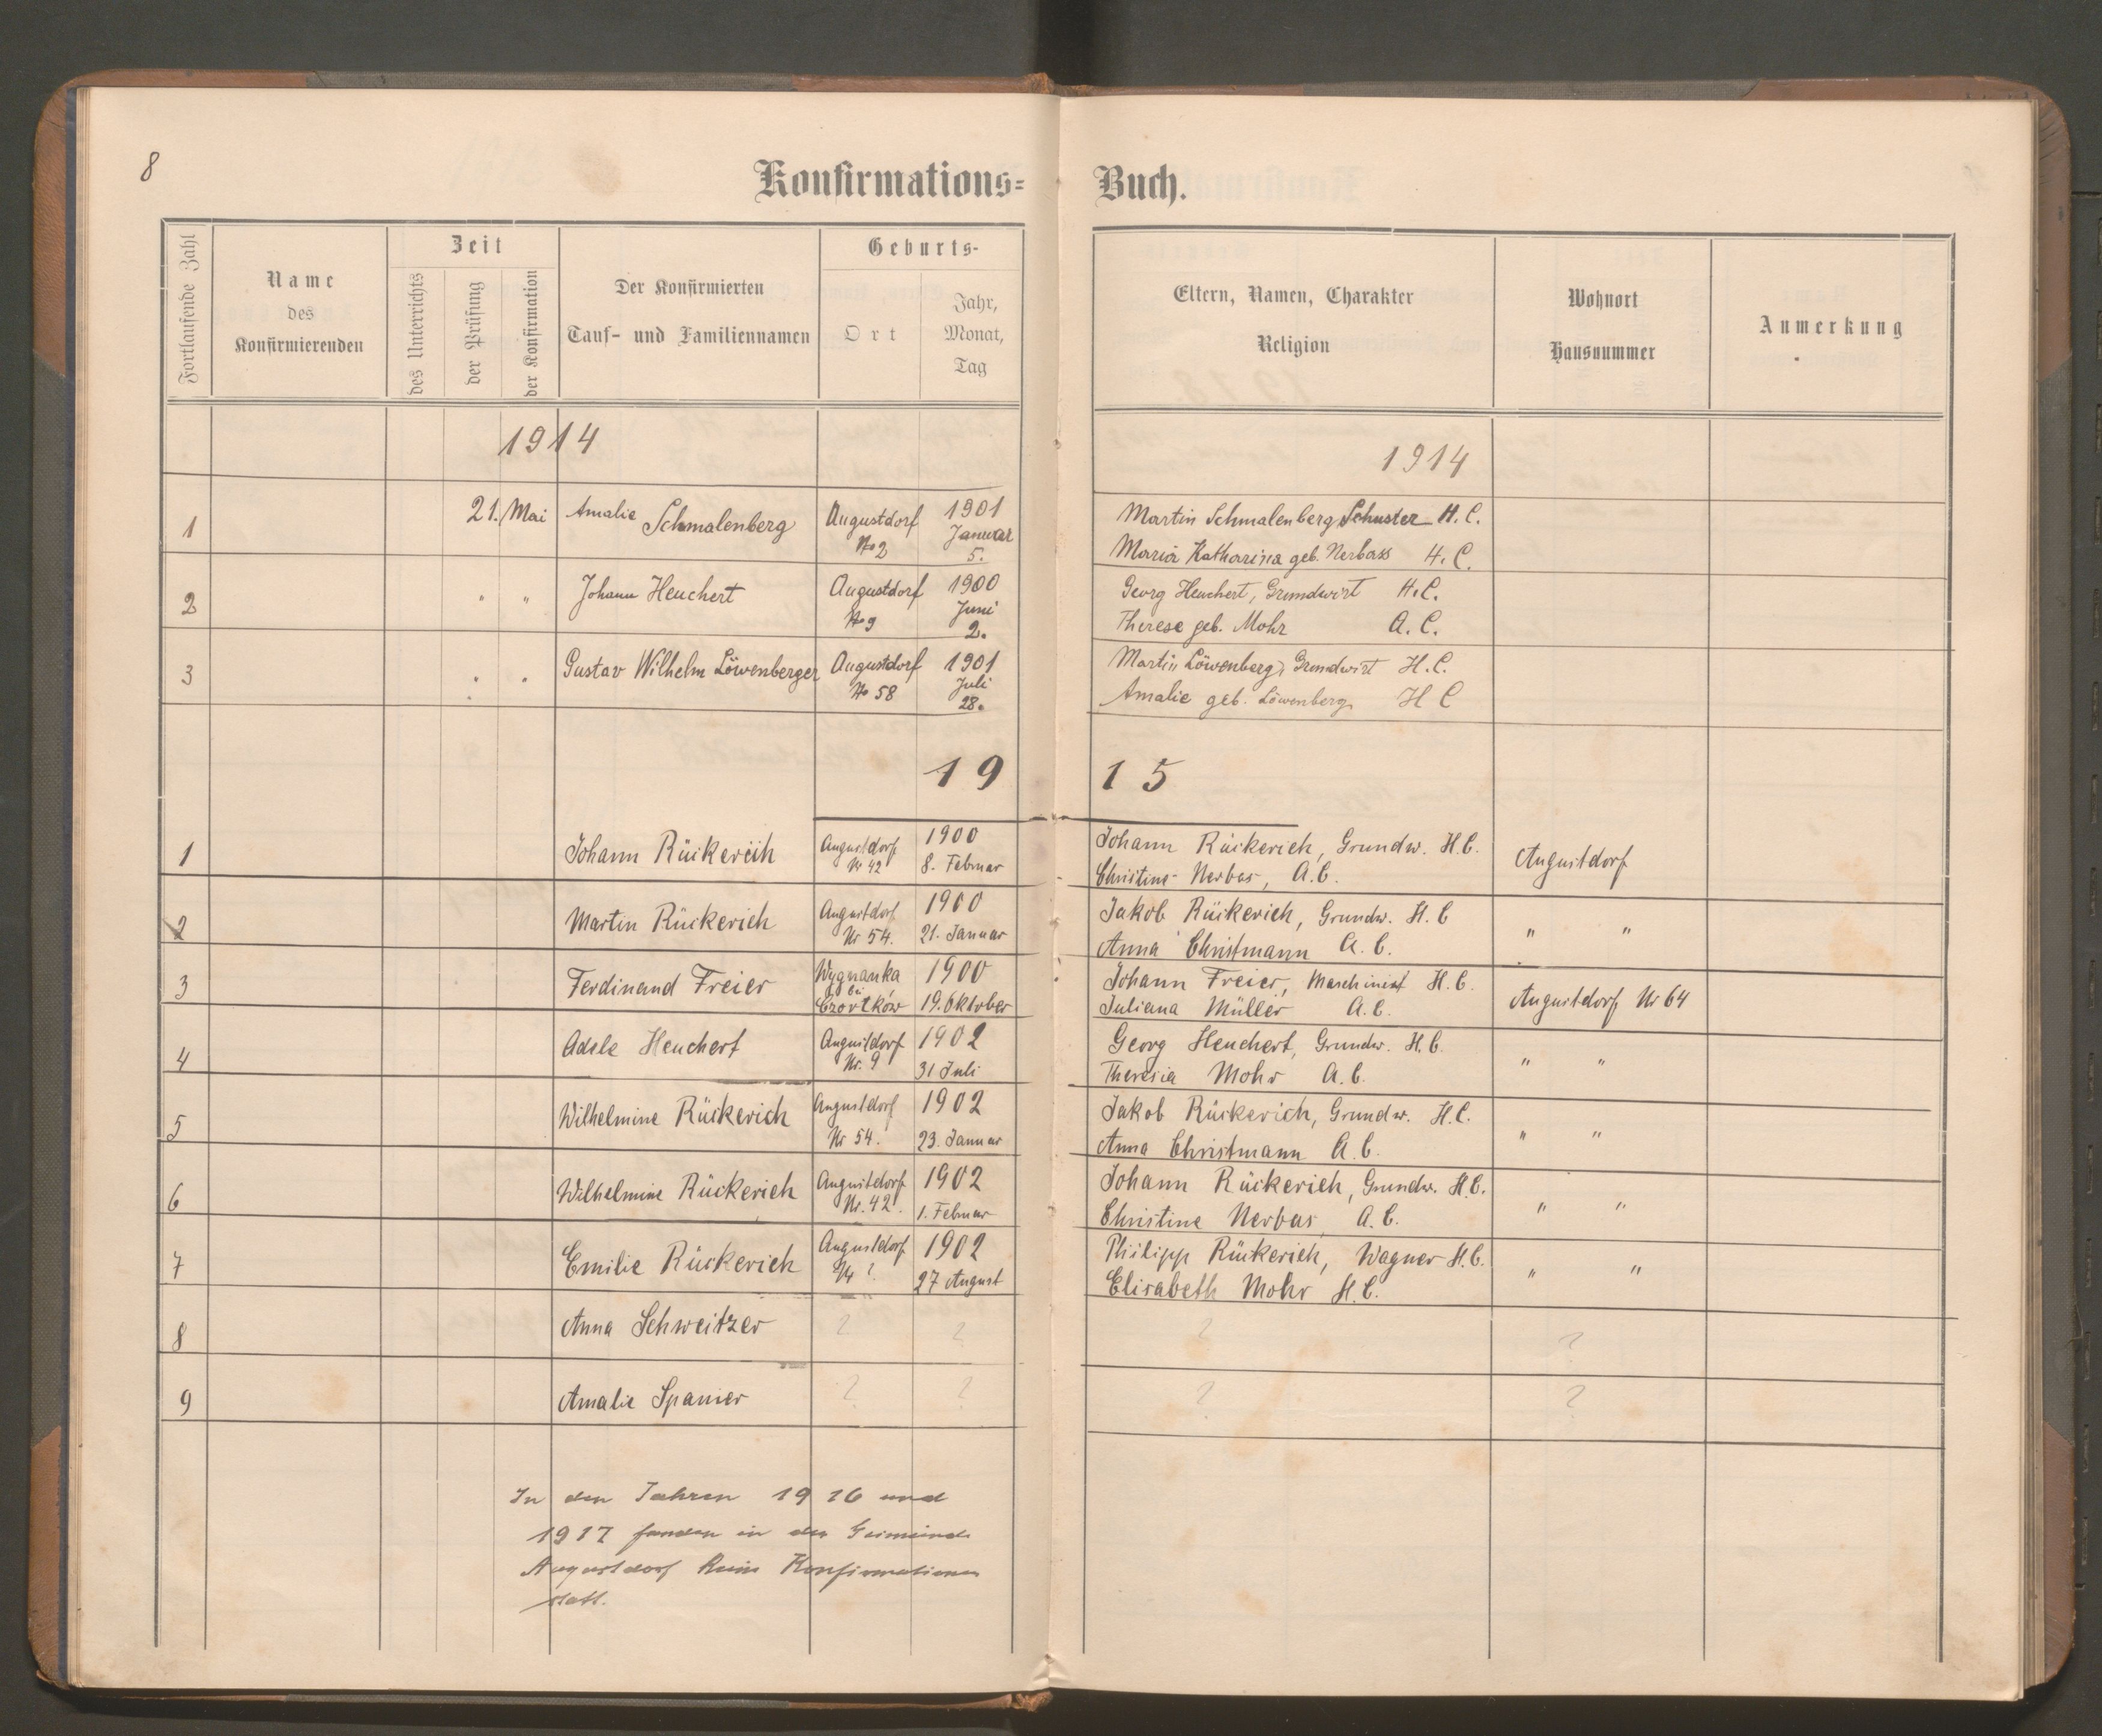 8
Konfirmations= Buch.
Fortlaufende Zahl
Name des Konfirmierenden
Zeit
des Unterrichts
der Prüfung
der Konfirmation
Der Konfirmierten
Tauf- und Familiennamen
Geburts-
Ort
Jahr, Monat, Tag
Eltern, Namen, Charakter
Religion
Wohnort
Hausnummer
Anmerkung
1914
1914
1 21. Mai Amalie Schmalenberg Augustdorf 1901 Martin Schmalenberg, Schuster H. C.
No 2 Januar 5. Maria Katharina geb. Nerbass H. C.
2 " " Johann Heuchert Augustdorf 1900 Georg Heuchert, Grundwirt H. C.
No 9 Juni 2. Therese geb. Mohr A. C.
3 " " Gustav Wilhelm Löwenberger Augustdorf 1901 Martin Löwenberg, Grundwirt H. C.
No 58 Juli 28. Amalie geb. Löwenberg H C
19 15
1 Johann Rückerich Augustdorf 1900 Johann Rückerich, Grundw. H. C. Augustdorf
Nr 42 8. Februar Christine Nerbas, A. C.
2 Martin Rückerich Augustdorf 1900 Jakob Rückerich, Grundw. H. C " "
Nr 54. 21. Januar Anna Christmann A. C.
3 Ferdinand Freier Wygnanka 1900 Johann Freier, Maschinist H. C. Augustdorf Nr 64
bei Czortków 19. Oktober Juliana Müller A. C.
4 Adele Heuchert Augustdorf 1902 Georg Heuchert, Grundw. H. C. " "
Nr. 9 31 Juli Theresia Mohr A. C.
5 Wilhelmine Rückerich Augustdorf 1902 Jakob Rückerich, Grundw. H. C. " "
Nr 54. 23. Januar Anna Christmann A. C.
6 Wilhelmine Rückerich Augustdorf 1902 Johann Rückerich, Grundw. H. C. " "
Nr. 42. 1. Februar Christine Nerbas, A. C.
7 Emilie Rückerich Augustdorf 1902 Philipp Rückerich, Wagner H. C. " "
? 27 August Elisabeth Mohr H. C.
8 Anna Schweitzer ? ? ? ?
9 Amalie Spanier ? ? ? ?
In den Jahren 1916 und
1917 fanden in der Gemeinde
Augustdorf keine Konfirmationen
statt.